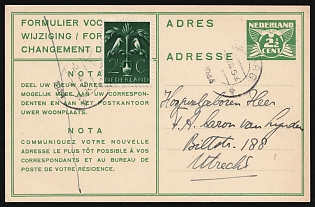 FORMULIER VOO
WIJZIGING / FOR
CHANGEMENT D
NEDERLAND
NOTA
DEEL UW NIEUW ADRES
MOGELIJK MEDE AAN UW CORRESPON-
DENTEN EN AAN HET POSTKANTOOR
UWER WOONPLAATS.
NOTA
COMMUNIQUEZ VOTRE NOUVELLE
ADRESSE LE PLUS TÔT POSSIBLE À VOS
CORRESPONDANTS ET AU BUREAU DE
POSTE DE VOTRE RÉSIDENCE.
ADRES
ADRESSE
NEDERLAND
2½
CENT
Hoogwelgeboren Heer
F.A. Baron van Lynden
Biltstr. 188
Utrecht